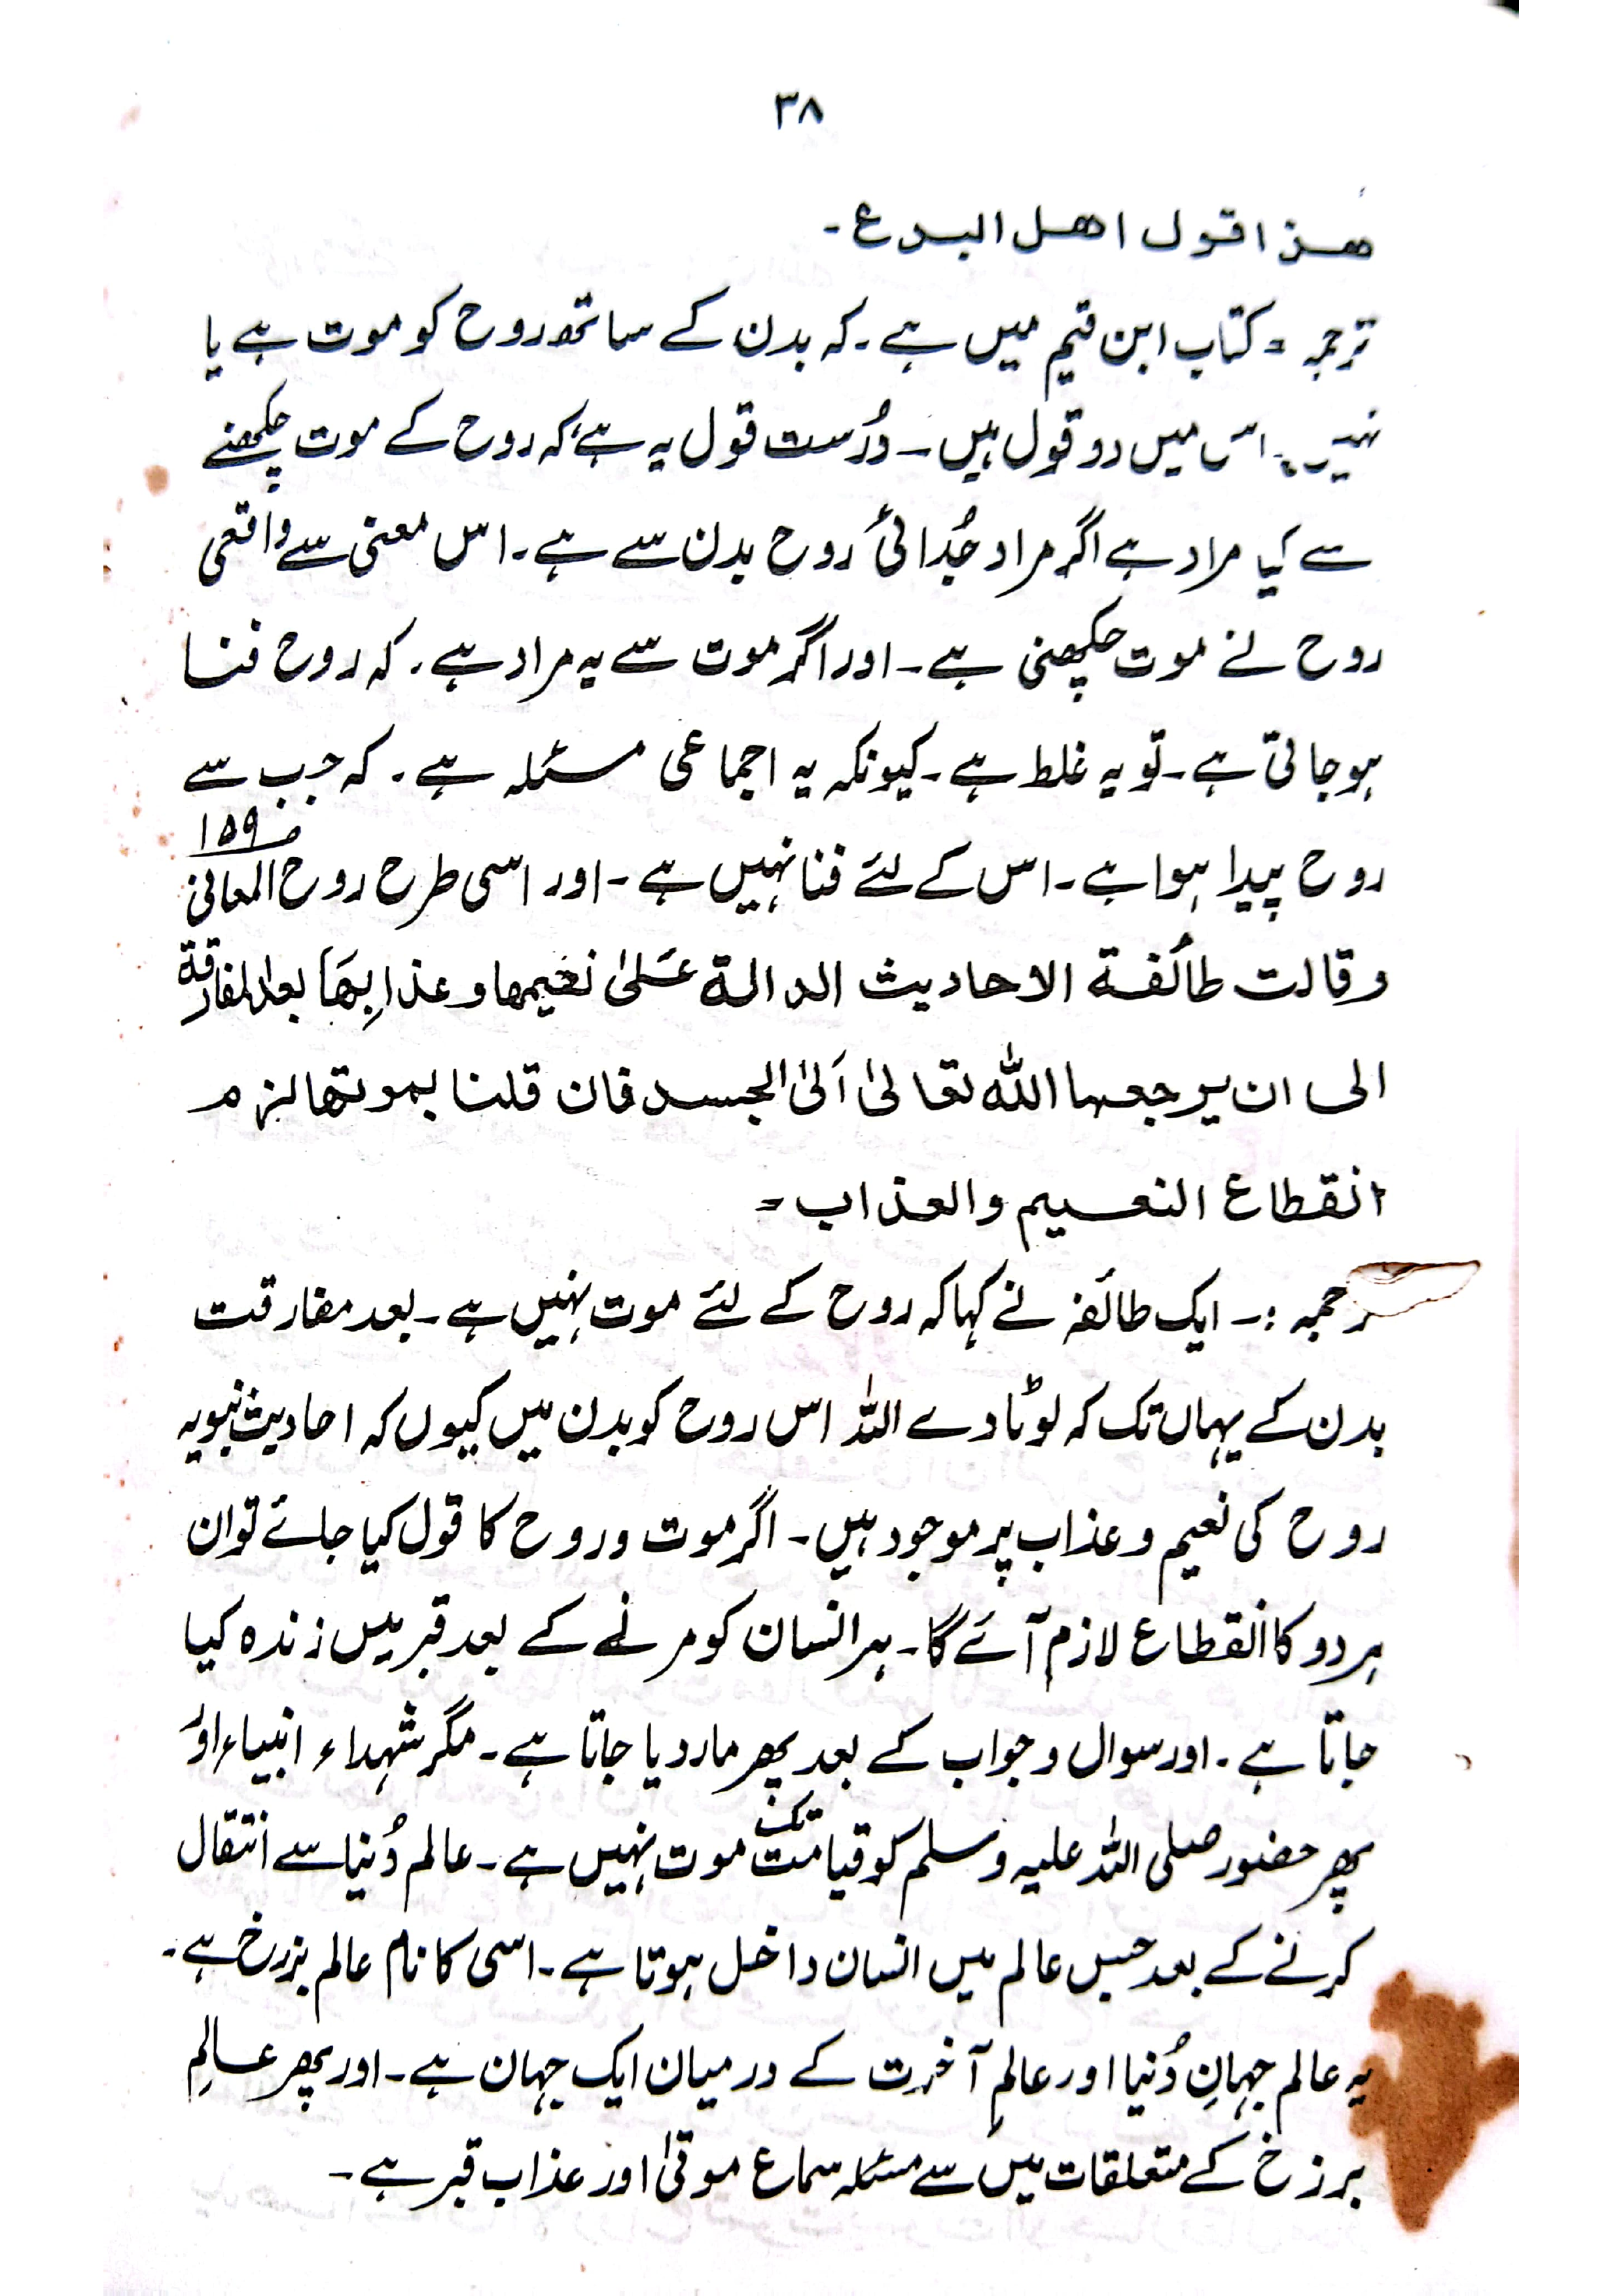 ۳۸
ھذا قول اھل البدع۔
ترجمہ = کتاب ابن قیم میں ہے۔ کہ بدن کے ساتھ روح کو موت ہے یا
نہیں۔ اس میں دو قول ہیں۔ دُرست قول یہ ہے کہ روح کے موت چکھنے
سے کیا مراد ہے اگر مراد جُدائی روح بدن سے ہے۔ اس معنی سے واقعی
روح نے موت چکھنی ہے۔ اور اگر موت سے یہ مراد ہے۔ کہ روح فنا
ہو جاتی ہے۔ تو یہ غلط ہے۔ کیونکہ یہ اجماعی مسئلہ ہے۔ کہ جب سے
روح پیدا ہوا ہے۔ اس کے لئے فنا نہیں ہے۔ اور اسی طرح روح المعانی ص۱۵۹
وقالت طائفۃ الاحادیث الدالۃ عَلیٰ نعیمھا وعذابِھَا بعد المفارقۃ
الی ان یرجعھا اللّٰہ تعالیٰ اَلیٰ الجسد فان قلنا بموتھا لزم
انقطاع النعیم والعذاب =
ترجمہ :۔ ایک طائفہ نے کہا کہ روح کے لئے موت نہیں ہے۔ بعد مفارقت
بدن کے یہاں تک کہ لوٹا دے اللہ اس روح کو بدن میں کیوں کہ احادیث نبویہ
روح کی نعیم و عذاب پر موجود ہیں۔ اگر موت و روح کا قول کیا جائے تو ان
ہر دو کا انقطاع لازم آئے گا۔ ہر انسان کو مرنے کے بعد قبر میں زندہ کیا
جاتا ہے۔ اور سوال و جواب کے بعد پھر مار دیا جاتا ہے۔ مگر شہداء انبیاء اور
پھر حضور صلی اللہ علیہ وسلم کو قیامت تک موت نہیں ہے۔ عالم دُنیا سے انتقال
کرنے کے بعد جس عالم میں انسان داخل ہوتا ہے۔ اسی کا نام عالم برزخ ہے۔
یہ عالم جہانِ دُنیا اور عالمِ آخرت کے درمیان ایک جہان ہے۔ اور پھر عالمِ
برزخ کے متعلقات میں سے مسئلہ سماع موتیٰ اور عذاب قبر ہے۔